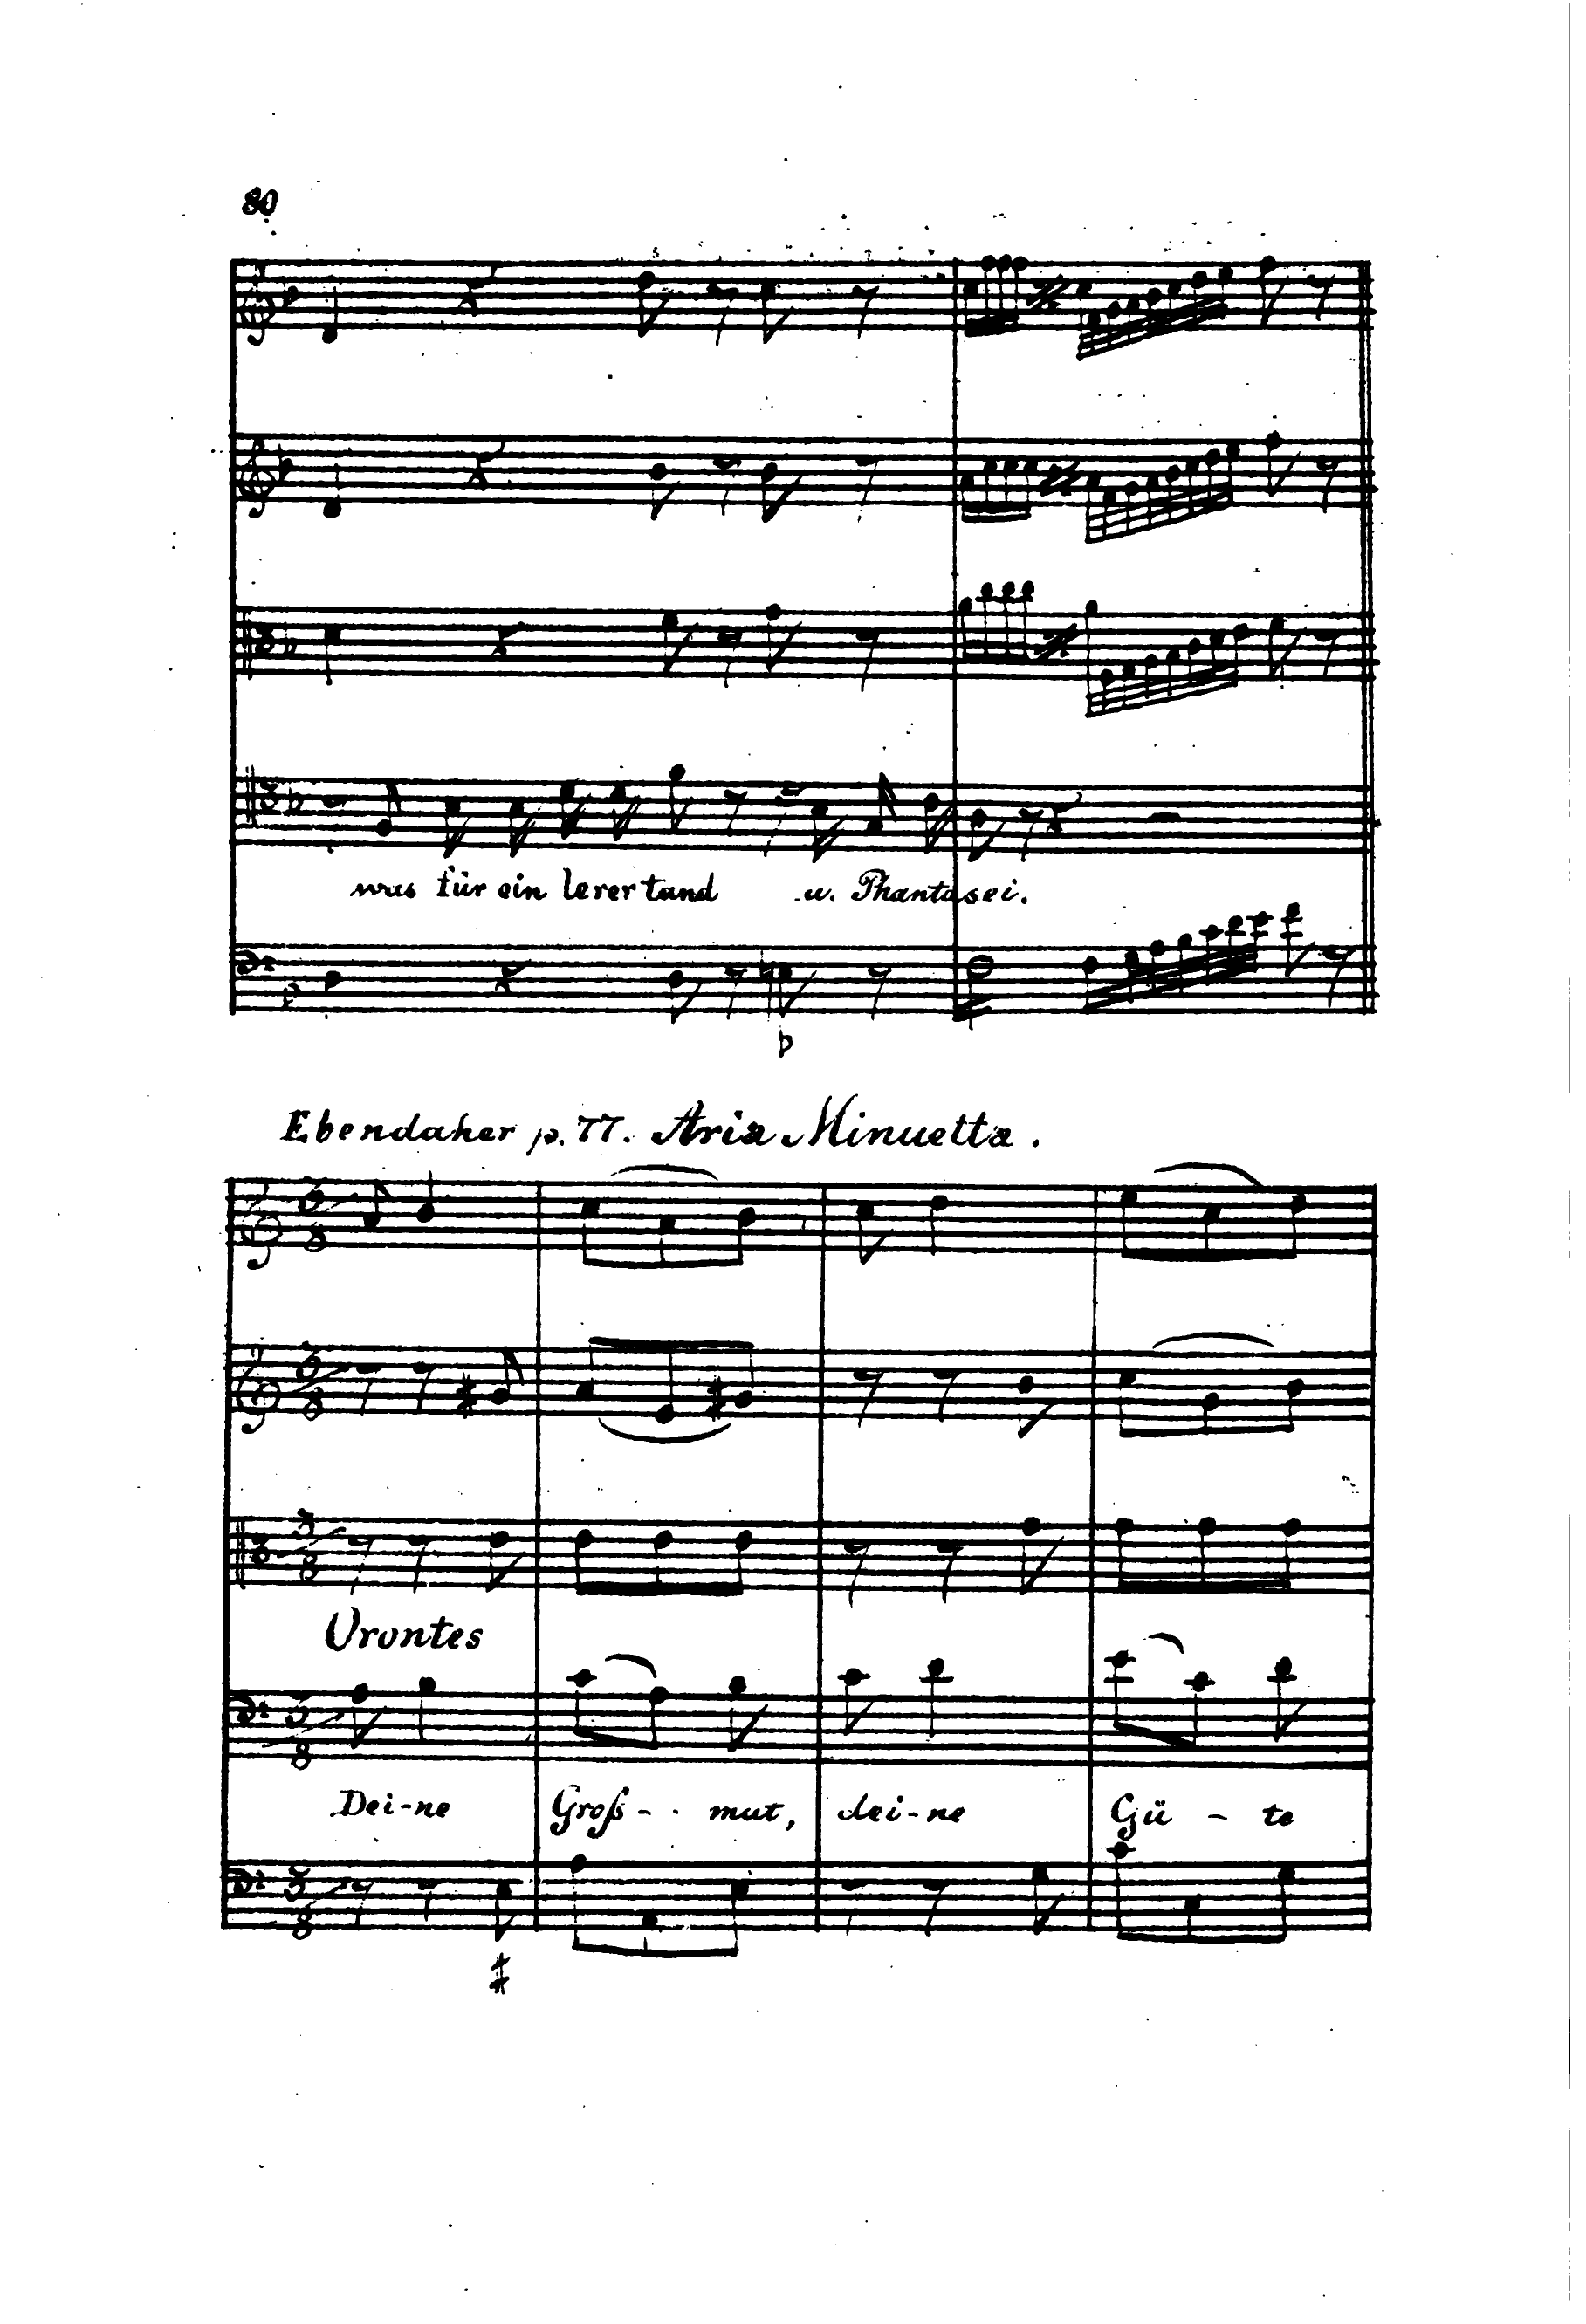 80
was für ein lerer tand u. Phantasei.
Ebendaher p. 77. Aria Minuetta.
Orontes
Dei-ne Groß- - mut, dei-ne Gü - te